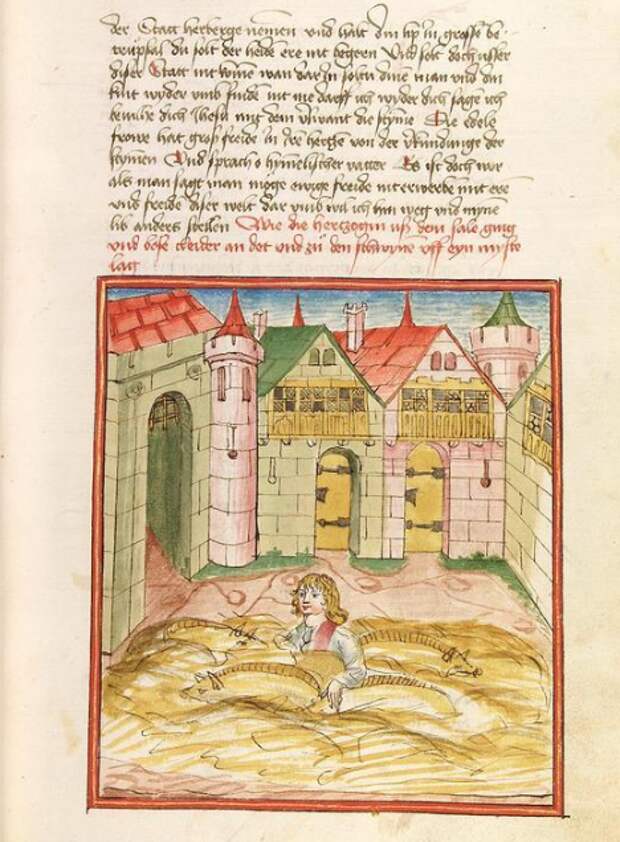 der Statt herberge nemen und halt din lip In grosse be-
trüpsal du solt der helde ere nit begeren Und solt doch usser
diser Statt nit komē wan dar In soltu dine man und din
kint wyder umb finden nit me darff ich wyder dich sagē ich
bevilhe dich Ihesu mit dem swant die stỹme Die edele
frowe hat groß freide in Irē hertzē von der v̈kundunge der
stỹmen Und sprach o hym̄elischer vatter Es ist doch wor
als man sagt man moge ewige freide nit erwerbē mit ere
und freide diser welt dar umb wil ich hin weg und mynē
lib anders stellen Wie die hertzogin uß dem sale ging
und bose cleider an det und zü den schwyne uff eyn myste
lag